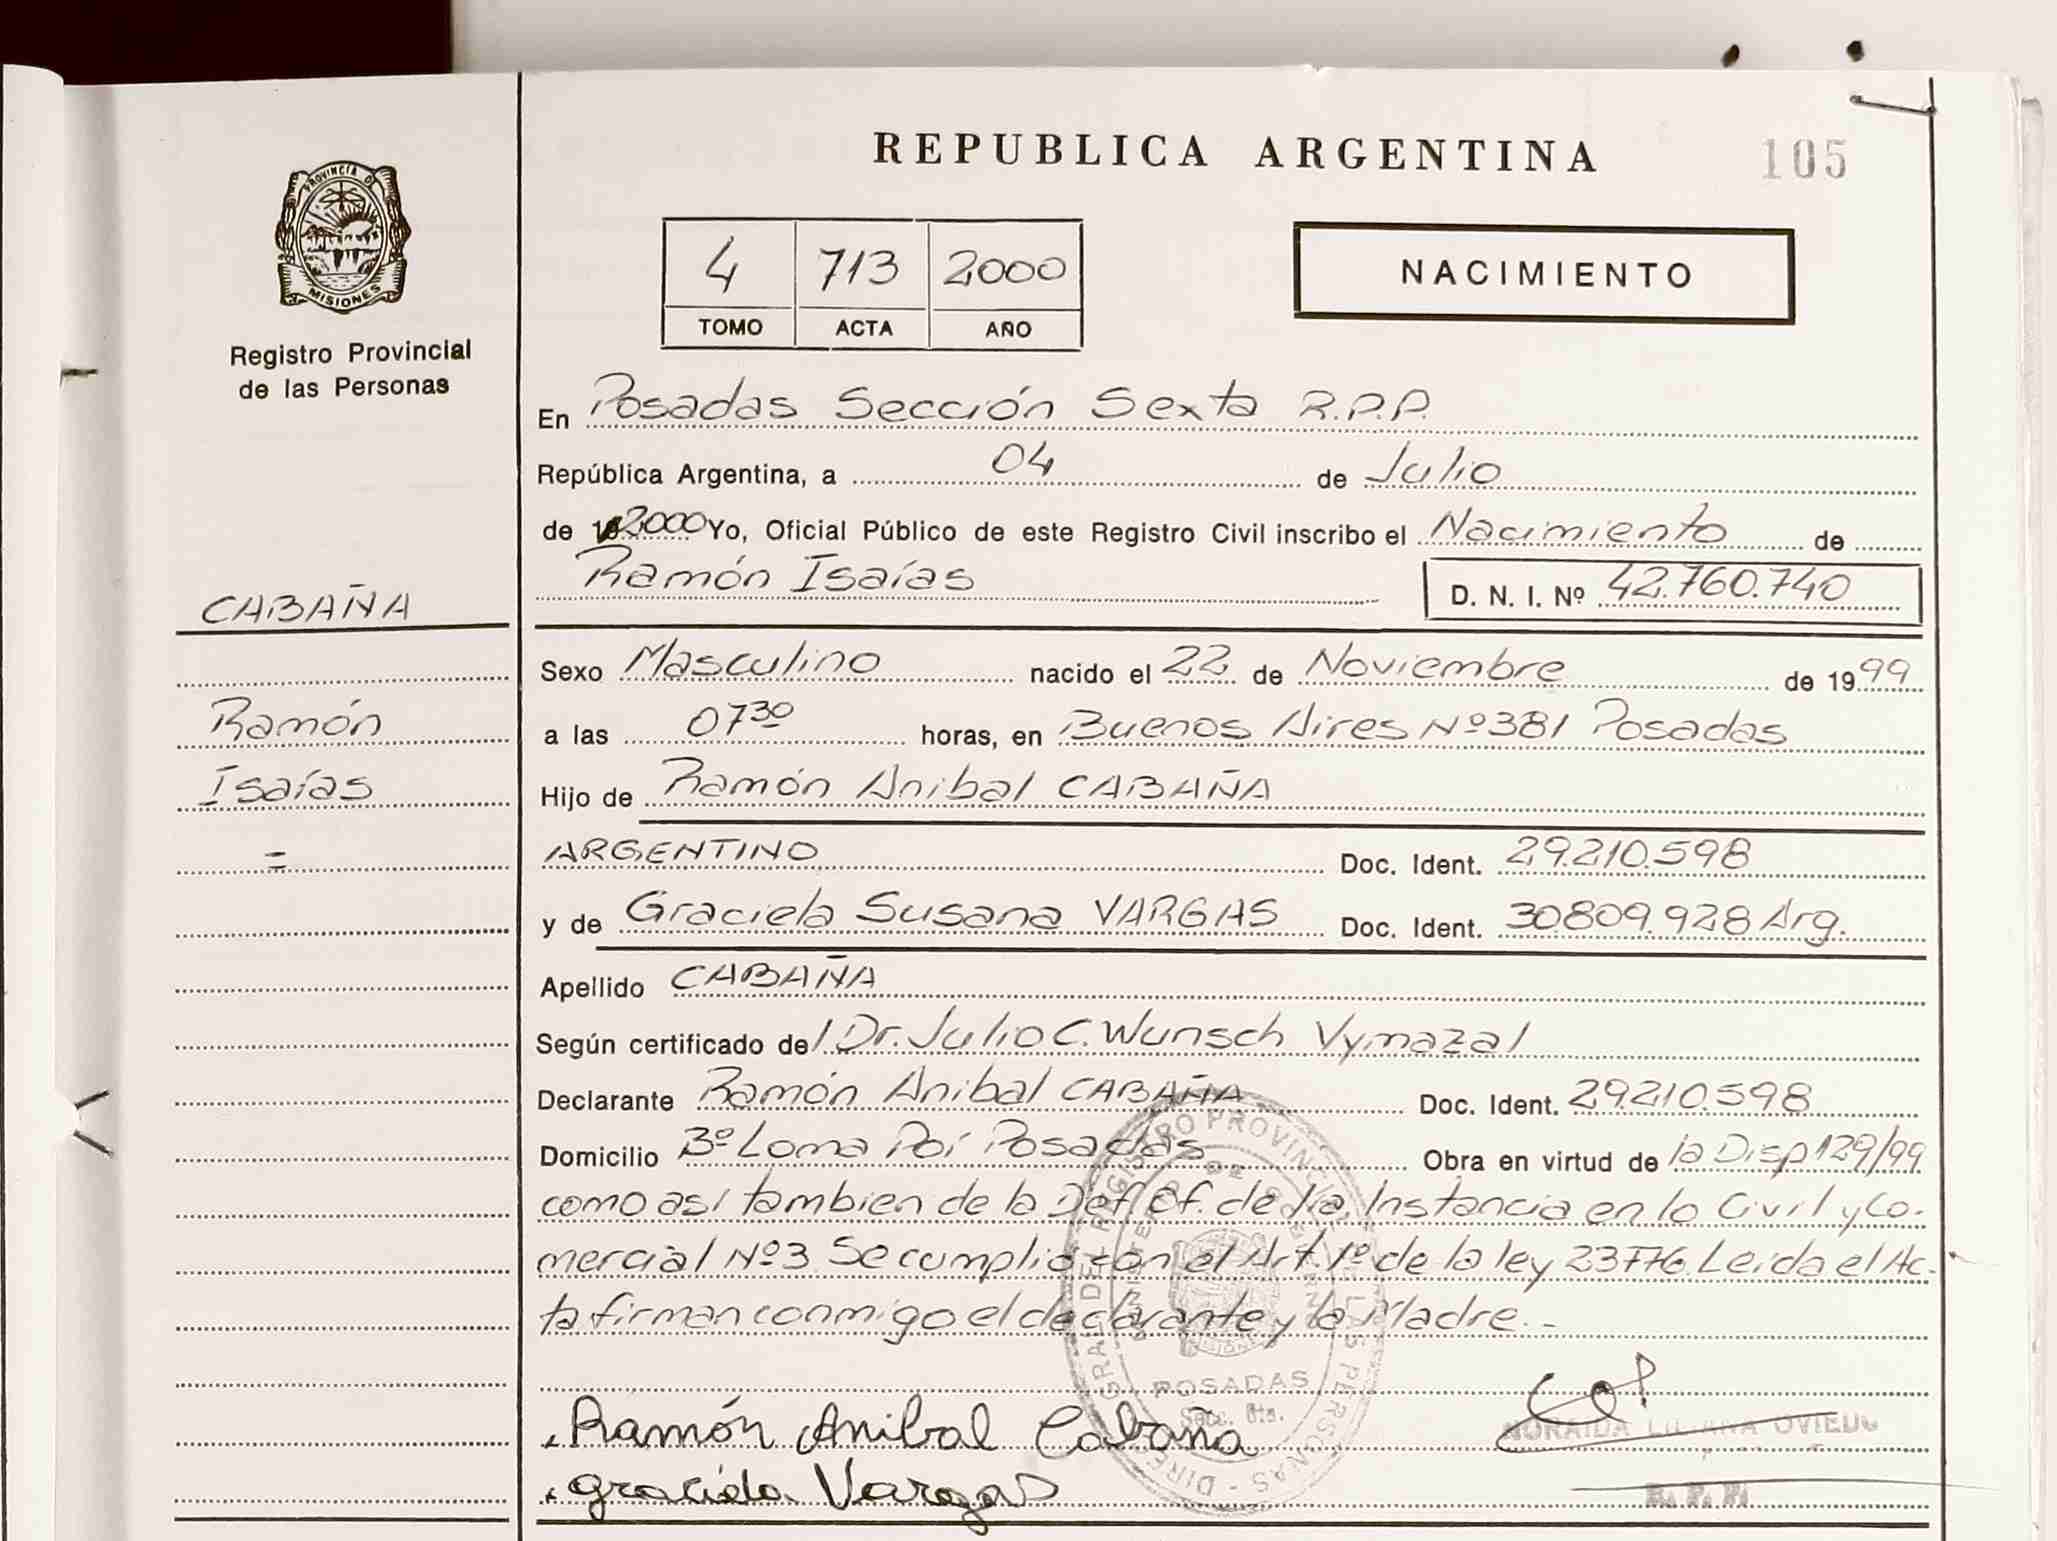 REPUBLICA ARGENTINA
105
PROVINCIA DE
MISIONES
Registro Provincial
de las Personas
4 713 2000
TOMO ACTA AÑO
NACIMIENTO
En Posadas Sección Sexta R.P.P.
República Argentina, a 04 de Julio
de 2000 Yo, Oficial Público de este Registro Civil inscribo el Nacimiento de
Ramón Isaías D. N. I. Nº 42.760.740
CABAÑA
Ramón
Isaías
=
Sexo Masculino nacido el 22 de Noviembre de 1999
a las 07³⁰ horas, en Buenos Aires Nº 381 Posadas
Hijo de Ramón Anibal CABAÑA
ARGENTINO Doc. Ident. 29.210.598
y de Graciela Susana VARGAS Doc. Ident. 30.809.928 Arg.
Apellido CABAÑA
Según certificado del Dr. Julio C. Wunsch Vymazal
Declarante Ramón Anibal CABAÑA Doc. Ident. 29.210.598
Domicilio Bº Loma Poí Posadas Obra en virtud de la Disp 129/99
como así tambien de la Def. Of. de 1ra Instancia en lo Civil y Co-
mercial Nº 3. Se cumplio con el Art. 1º de la ley 23776. Leida el Ac-
ta firman conmigo el declarante y la Madre. -
Ramón Anibal Cabaña
Graciela Vargas
NORAIDA LILIANA OVIEDO
R. P. P.
DIREC GRAL DEL REGISTRO PROVINCIAL DE LAS PERSONAS
MINISTERIO DE GOBIERNO
POSADAS
Secc. 6ta.